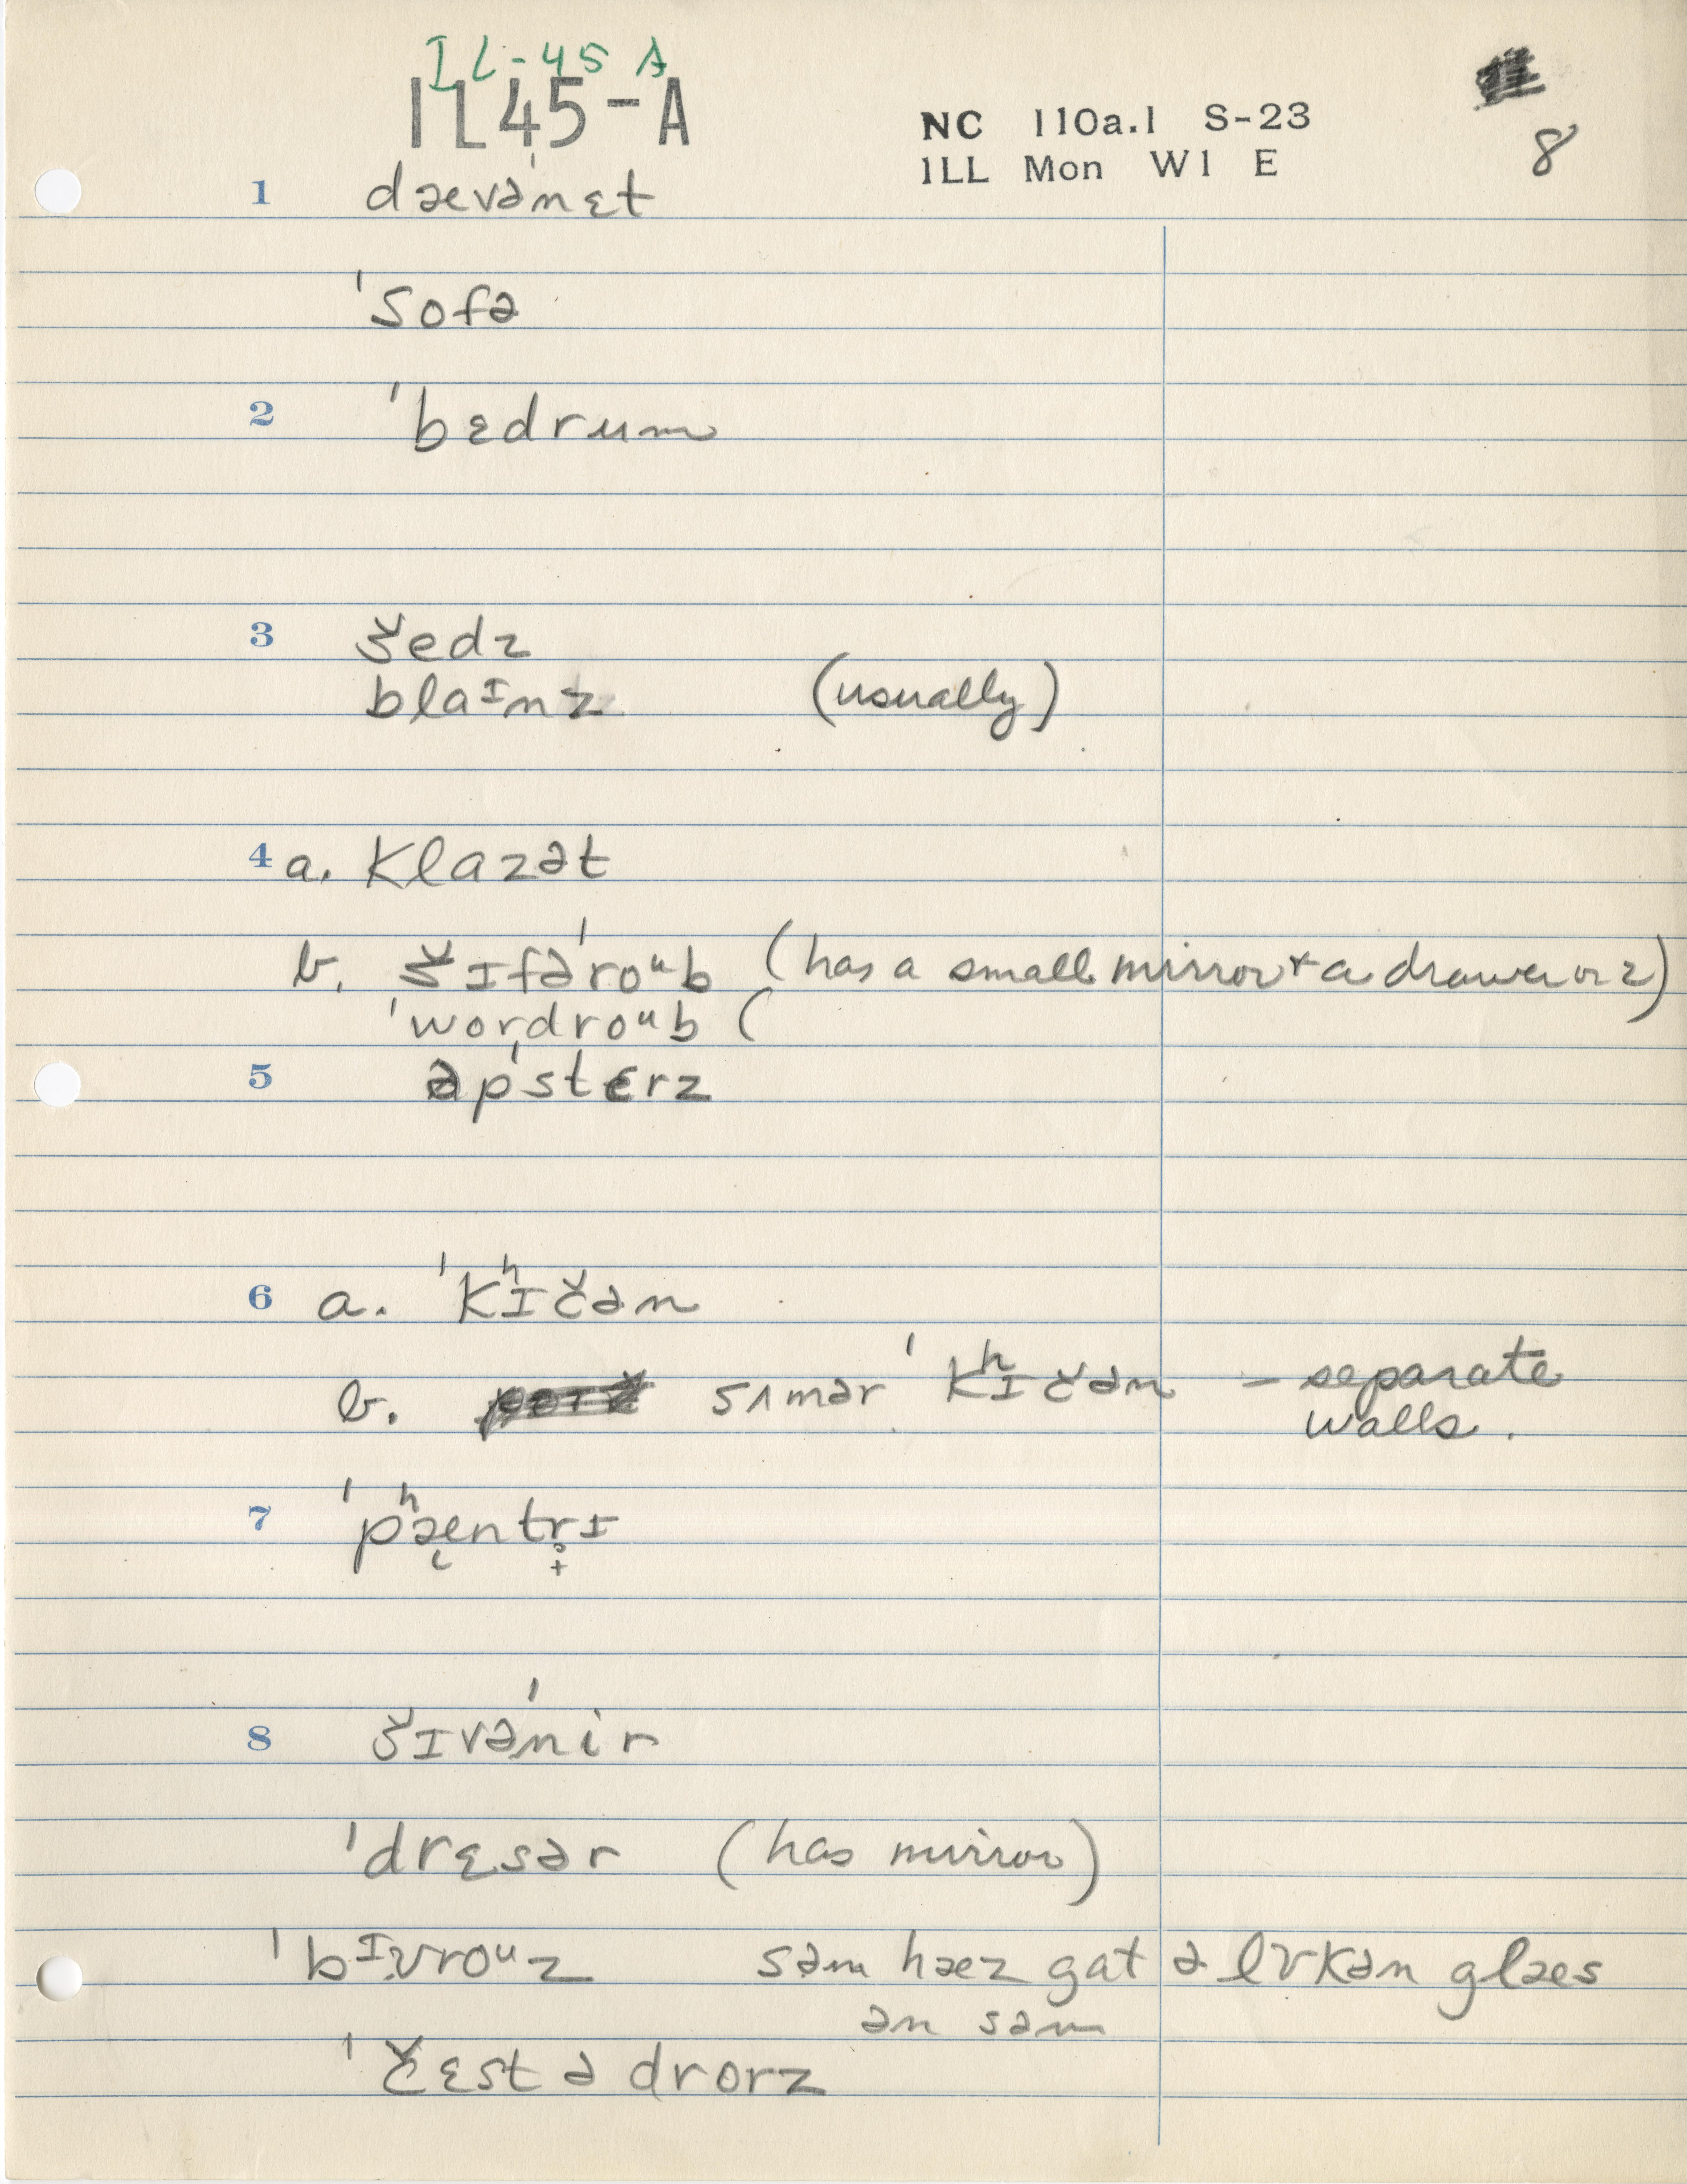 IL-45 A
IL45-A
NC 110a.1 S-23
ILL Mon W1 E
8
1 dævəˈnɛt
ˈsofə
2 ˈbɛdrum
3 šedz
blaɪnz (usually)
4 a. klazət
b. šɪfəˈroᵘb (has a small mirror + a drawer or 2)
ˈwordroᵘb (
5 əpˈstɛrz
6 a. ˈkʰɪčən
b. sʌmər ˈkʰɪčən – separate
walls.
7 ˈpʰæntrɪ
8 šɪvəˈnir
ˈdrɛsər (has mirror)
ˈbɪvroᵘz səm hæz gat ə lʊkən glæs
ən səm
ˈčɛst ə drorz